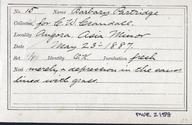 No. 15 Name Barbary Partridge
Collection for C. W. Crandall.
Locality Angora, Asia Minor
Date May 23rd 1887.
Set Identity O.K. Incubation fresh
Nest merely a depression in the sand
lined with grass.